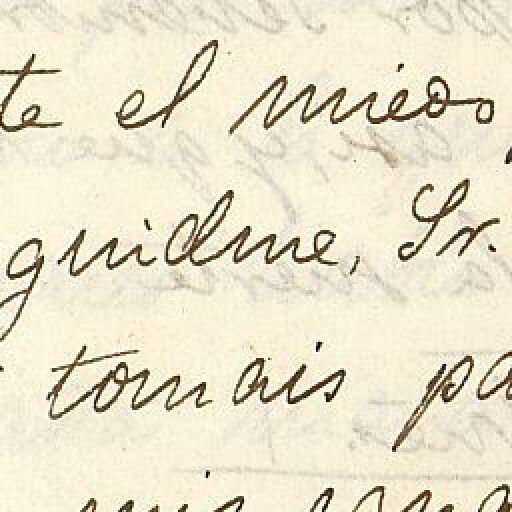 te el miedo,
guidme, Sr.
tomais pa